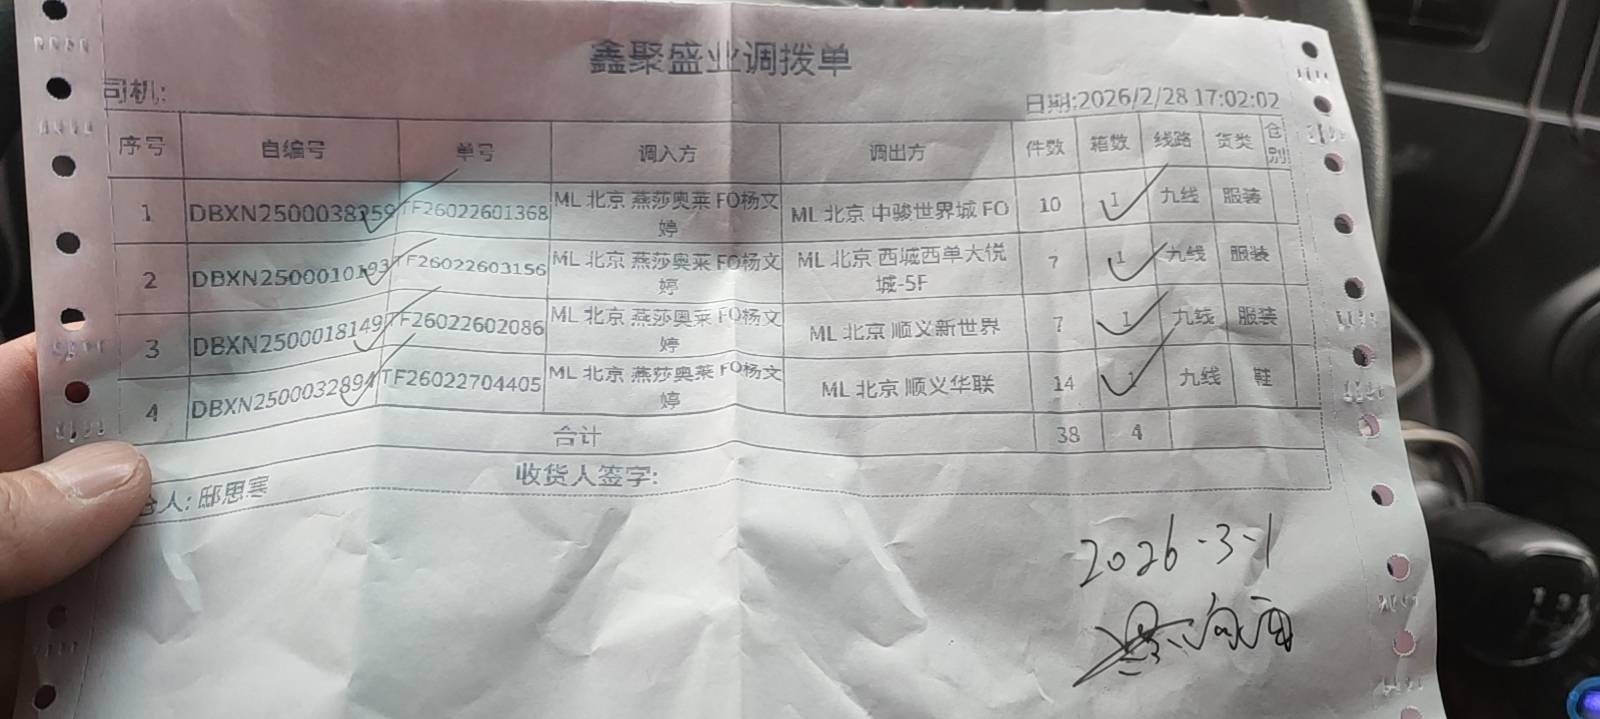 鑫聚盛业调拨单
司机:
日期:2026/2/28 17:02:02
序号 自编号 单号 调入方 调出方 件数 箱数 线路 货类 仓别
1 DBXN2500038259 TF26022601368 ML 北京 燕莎奥莱 FO杨文婷 ML 北京 中骏世界城 FO 10 1 九线 服装
2 DBXN2500010193 TF26022603156 ML 北京 燕莎奥莱 FO杨文婷 ML 北京 西城西单大悦城-5F 7 1 九线 服装
3 DBXN2500018149 TF26022602086 ML 北京 燕莎奥莱 FO杨文婷 ML 北京 顺义新世界 7 1 九线 服装
4 DBXN2500032894 TF26022704405 ML 北京 燕莎奥莱 FO杨文婷 ML 北京 顺义华联 14 1 九线 鞋
合计 38 4
人: 邸思寒 收货人签字:
2026-3-1